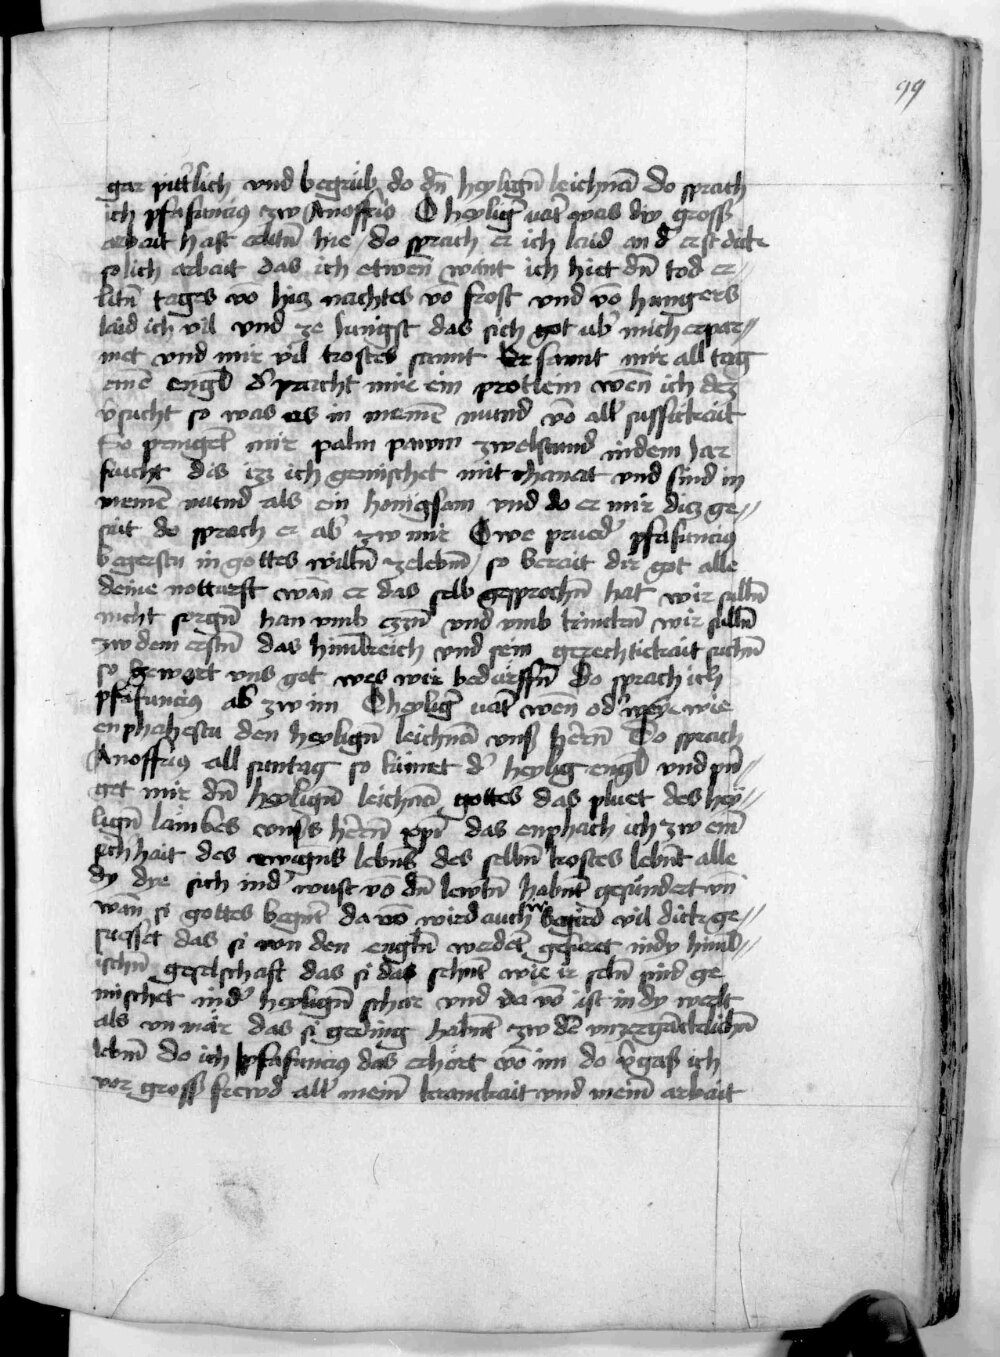 99
gar pitt'lich vnd begrub do dn̄ heylign̄ leichnā do sprach
ich pfafuncius zw Anoffrio O heylig' vat' was dw gross
arbait hast erlitn̄ hie / do sprach er ich laid an d' erst dick
solich arbait das ich etwen̄ want ich hiet dn̄ tod er //
litn̄ tages vō hicz nachtes vō frost vnd vō hungers
laid ich vil vnd ze Jungst das sich got vb' mich erpar //
met vnd mir vil trostes sannt Er sannt mir all tag
einē engl d' pracht mir ein protlein wen̄ ich dez
v'sucht so was es in meinē mund vō all' sussickait
Do pringet mir palm pawm zwelfstund in dem Jar
frucht dis izz ich gemischet mit chrawt vnd sind in
meinē mund als ein honigsam vnd do er mir dicz ge //
sait do sprach er ab' zw mir O we prued' pfafuncius
begerstu in gottes willn̄ zelebm̄ / so berait dir got alle
deine notturft wan̄ er das selb gesprochn̄ hat wir sulln̄
nicht sorgn̄ han vmb ezzn̄ vnd vmb trinckn̄ wir sulln̄
zw dem erstn̄ das himlreich vnd sein gerechtickait suchn̄
so gewert vns got wes wir bedürffn̄ Do sprach ich
pfafuncius ab' zw im O heylig' vat' wen̄ od' weye wie
enphahestu den heylign̄ leichnā vns' herrn̄ Do sprach
Anoffrius all suntag so kumet d' heylig engl vnd prin̄ //
get mir dn̄ heylign̄ leichnā gottes das pluet des hey //
lign̄ lambes vnsers herrn̄ xpī das enphach ich zw ein̄
sich'hait des ewigens lebns des selbn̄ trostes lebn̄t alle
dy dye sich in d' wust vō dn̄ lewtn̄ habn̄t gesundert vn̄
wan̄ si gottes begn̄t da vō wird auch ir begird vil dick ge //
suesset das si von den engln̄ werdet gefüret in dy himl //
ischn̄ geselschaft das si das sehn̄t wie ir seln̄ sind ge
mischet in d' heylign̄ schar vnd da vō ist in dy werlt
als vnmär das si geding habn̄t zw dē vnzergäncklichn̄
lebn̄ do ich pfafuncius das erhort vō im do v'gass ich
vor gross frewd all' mein̄ kranckait vnd mein̄ arbait